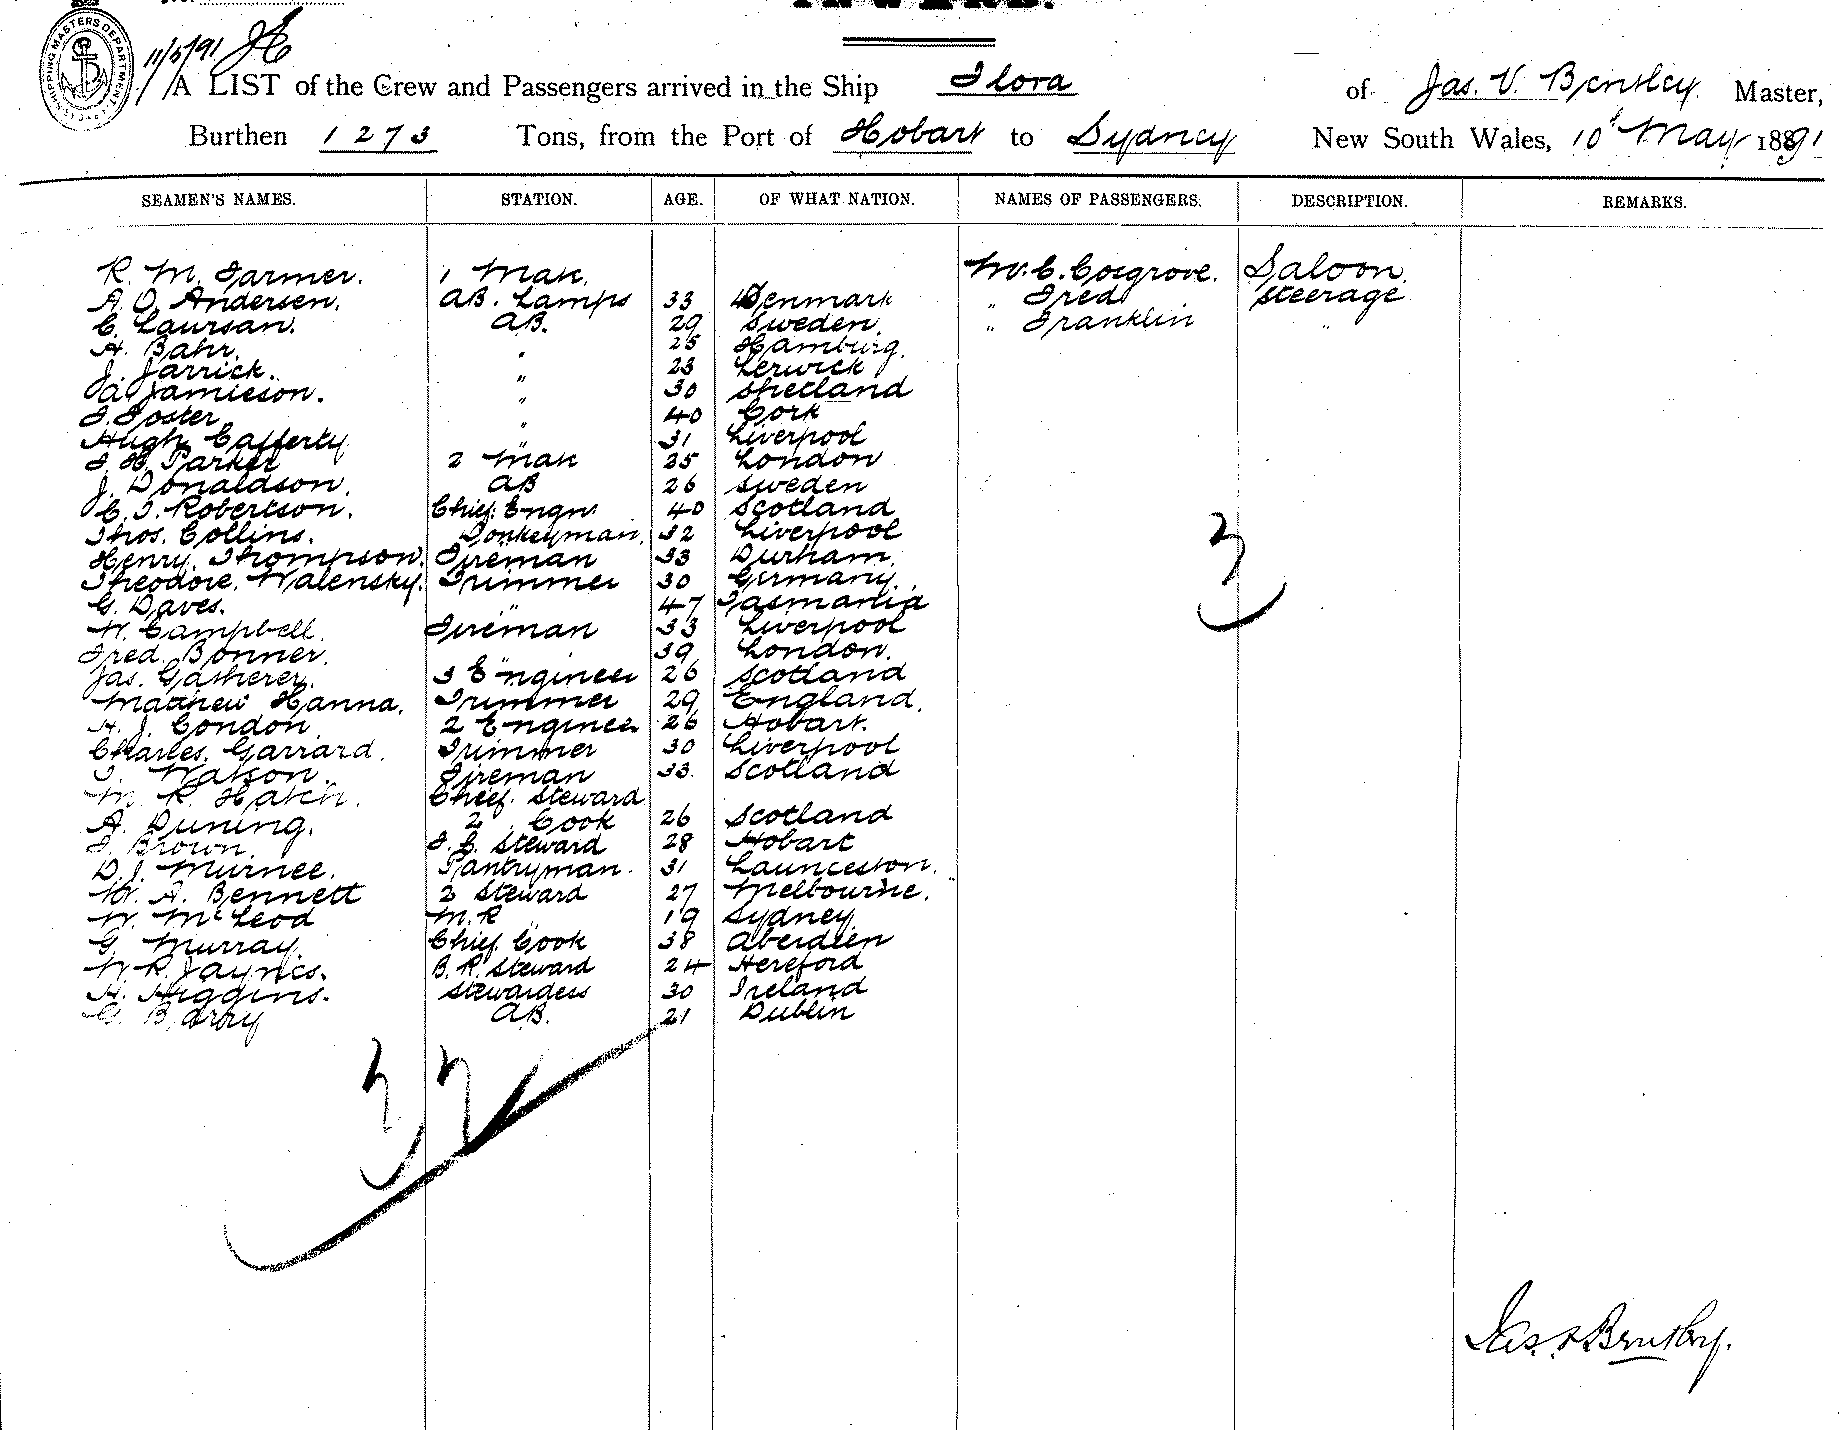 SHIPPING MASTERS DEPARTMENT
11/5/91
A LIST of the Crew and Passengers arrived in the Ship Flora of Jas. V. Bentley Master,
Burthen 1273 Tons, from the Port of Hobart to Sydney New South Wales, 10th May 1891
SEAMEN'S NAMES. STATION. AGE. OF WHAT NATION. NAMES OF PASSENGERS. DESCRIPTION. REMARKS.
R. M. Farmer. 1 Mate. Mr. C. Cosgrove. Saloon.
A. O. Andersen. AB. Lamps 33 Denmark " Fred Steerage
C. Laursan. AB. 29 Sweden. " Franklin "
H. Bahr. " 25 Hamburg.
J. Jarrick. " 23 Lerwick
A. Jamieson. " 30 Shetland
F. Foster " 40 Cork
Hugh Cafferty " 31 Liverpool
F. H. Parker 2 Mate 35 London
J. Donaldson. AB 26 Sweden
C. F. Robertson. Chief Engnr 40 Scotland
Thos. Collins. Donkeyman. 32 Liverpool
Henry Thompson. Fireman 33 Durham.
Theodore Walensky. Trimmer 30 Germany.
G. Daves. " 47 Tasmania
W. Campbell. Fireman 33 Liverpool
Fred. Bonner. " 39 London.
Jas. Gatherer. 3 Engineer 26 Scotland
Matthew Hanna. Trimmer 29 England.
H. J. Condon. 2 Engineer 26 Hobart.
Charles Garrard. Trimmer 30 Liverpool
T. Watson. Fireman 33. Scotland
M. R. Hatch. Chief Steward
A. Duning. 2 Cook 26 Scotland
F. Brown. F. C. Steward 28 Hobart
D. J. Murnee. Pantryman. 31 Launceston.
W. A. Bennett 2 Steward 27 Melbourne.
W. McLeod M. R " 19 Sydney
G. Murray. Chief Cook 38 Aberdeen
W. R. Jaynes. B. R. Steward 24 Hereford
H. Higgins. Stewardess 30 Ireland
G. Barry AB. 21 Dublin
3
32
Jas. V. Bentley.